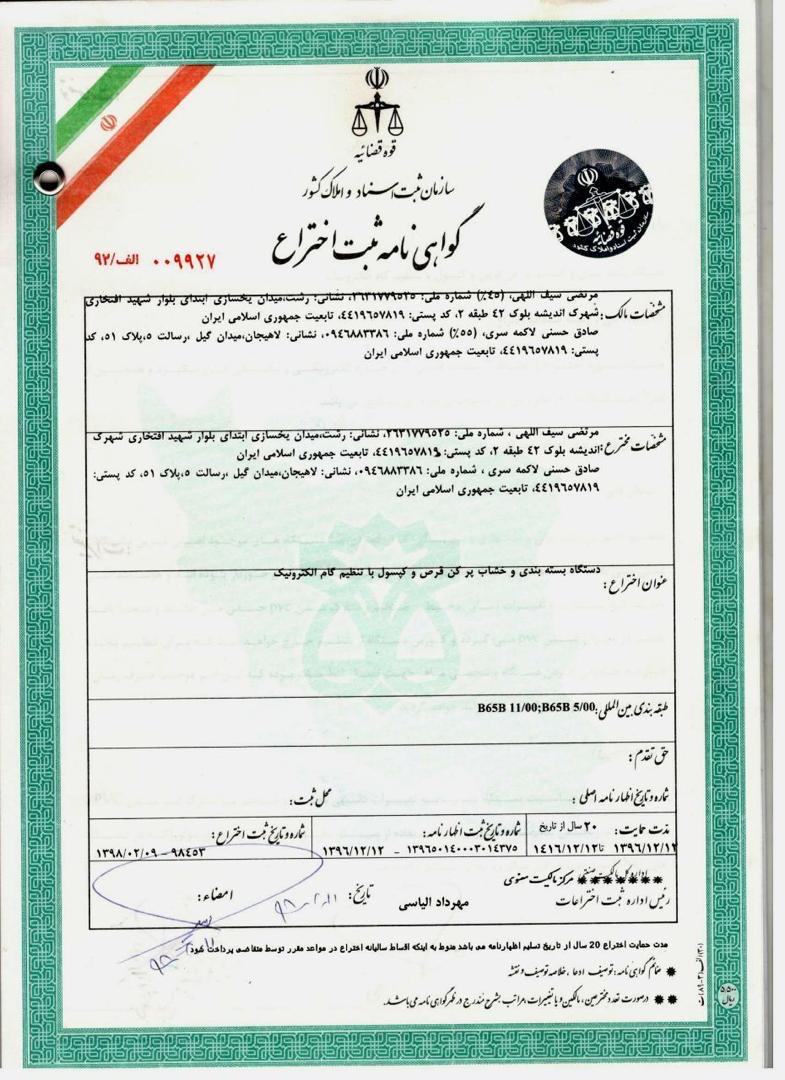 قوه قضائیه
سازمان ثبت اسناد و املاک کشور
گواهی نامه ثبت اختراع
قوه قضائیه
سازمان ثبت اسناد و املاک کشور
۰۰۹۹۲۷ الف/۹۲
مشخصات مالک:
مرتضی سیف اللهی، (٤٥٪) شماره ملی: ۲٦۳۱۷۷۹٥۳٥، نشانی: رشت،میدان یخسازی ابتدای بلوار شهید افتخاری
شهرک اندیشه بلوک ٤۲ طبقه ۲، کد پستی: ٤٤۱۹٦٥۷۸۱۹، تابعیت جمهوری اسلامی ایران
صادق حسنی لاکمه سری، (٥٥٪) شماره ملی: ۰۹٤٦۸۸۳۳۸٦، نشانی: لاهیجان،میدان گیل ،رسالت ٥،پلاک ٥۱، کد
پستی: ٤٤۱۹٦٥۷۸۱۹، تابعیت جمهوری اسلامی ایران
مشخصات مخترع:
مرتضی سیف اللهی ، شماره ملی: ۲٦۳۱۷۷۹٥۳٥، نشانی: رشت،میدان یخسازی ابتدای بلوار شهید افتخاری شهرک
اندیشه بلوک ٤۲ طبقه ۲، کد پستی: ٤٤۱۹٦٥۷۸۱۹، تابعیت جمهوری اسلامی ایران
صادق حسنی لاکمه سری ، شماره ملی: ۰۹٤٦۸۸۳۳۸٦، نشانی: لاهیجان،میدان گیل ،رسالت ٥،پلاک ٥۱، کد پستی:
٤٤۱۹٦٥۷۸۱۹، تابعیت جمهوری اسلامی ایران
عنوان اختراع:
دستگاه بسته بندی و خشاب پر کن قرص و کپسول با تنظیم گام الکترونیک
طبقه بندی بین المللی: B65B 11/00;B65B 5/00
حق تقدم:
شماره و تاریخ اظهارنامه اصلی: محل ثبت:
مدت حمایت: ۲۰ سال از تاریخ
۱۳۹٦/۱۲/۱۲ تا ۱٤۱٦/۱۲/۱۲
شماره و تاریخ ثبت اظهارنامه:
۱۳۹٦٥۰۱٤۰۰۰۳۰۱٤۳۷٥ - ۱۳۹٦/۱۲/۱۲
شماره و تاریخ ثبت اختراع:
۹۸٤٥۳ - ۱۳۹۸/۰۲/۰۹
مرکز مالکیت معنوی
رئیس اداره ثبت اختراعات مهرداد الیاسی تاریخ: امضاء:
مدت حمایت اختراع 20 سال از تاریخ تسلیم اظهارنامه می باشد منوط به اینکه اقساط سالیانه اختراع در مواعد مقرر توسط متقاضی پرداخت شود)
* ضمائم گواهی نامه: توصیف ادعا، خلاصه توصیف و نقشه
** در صورت تعدد مخترعین، مالکین و یا تغییرات، مراتب بشرح مندرج در ظهر گواهی نامه می باشد.
ریال